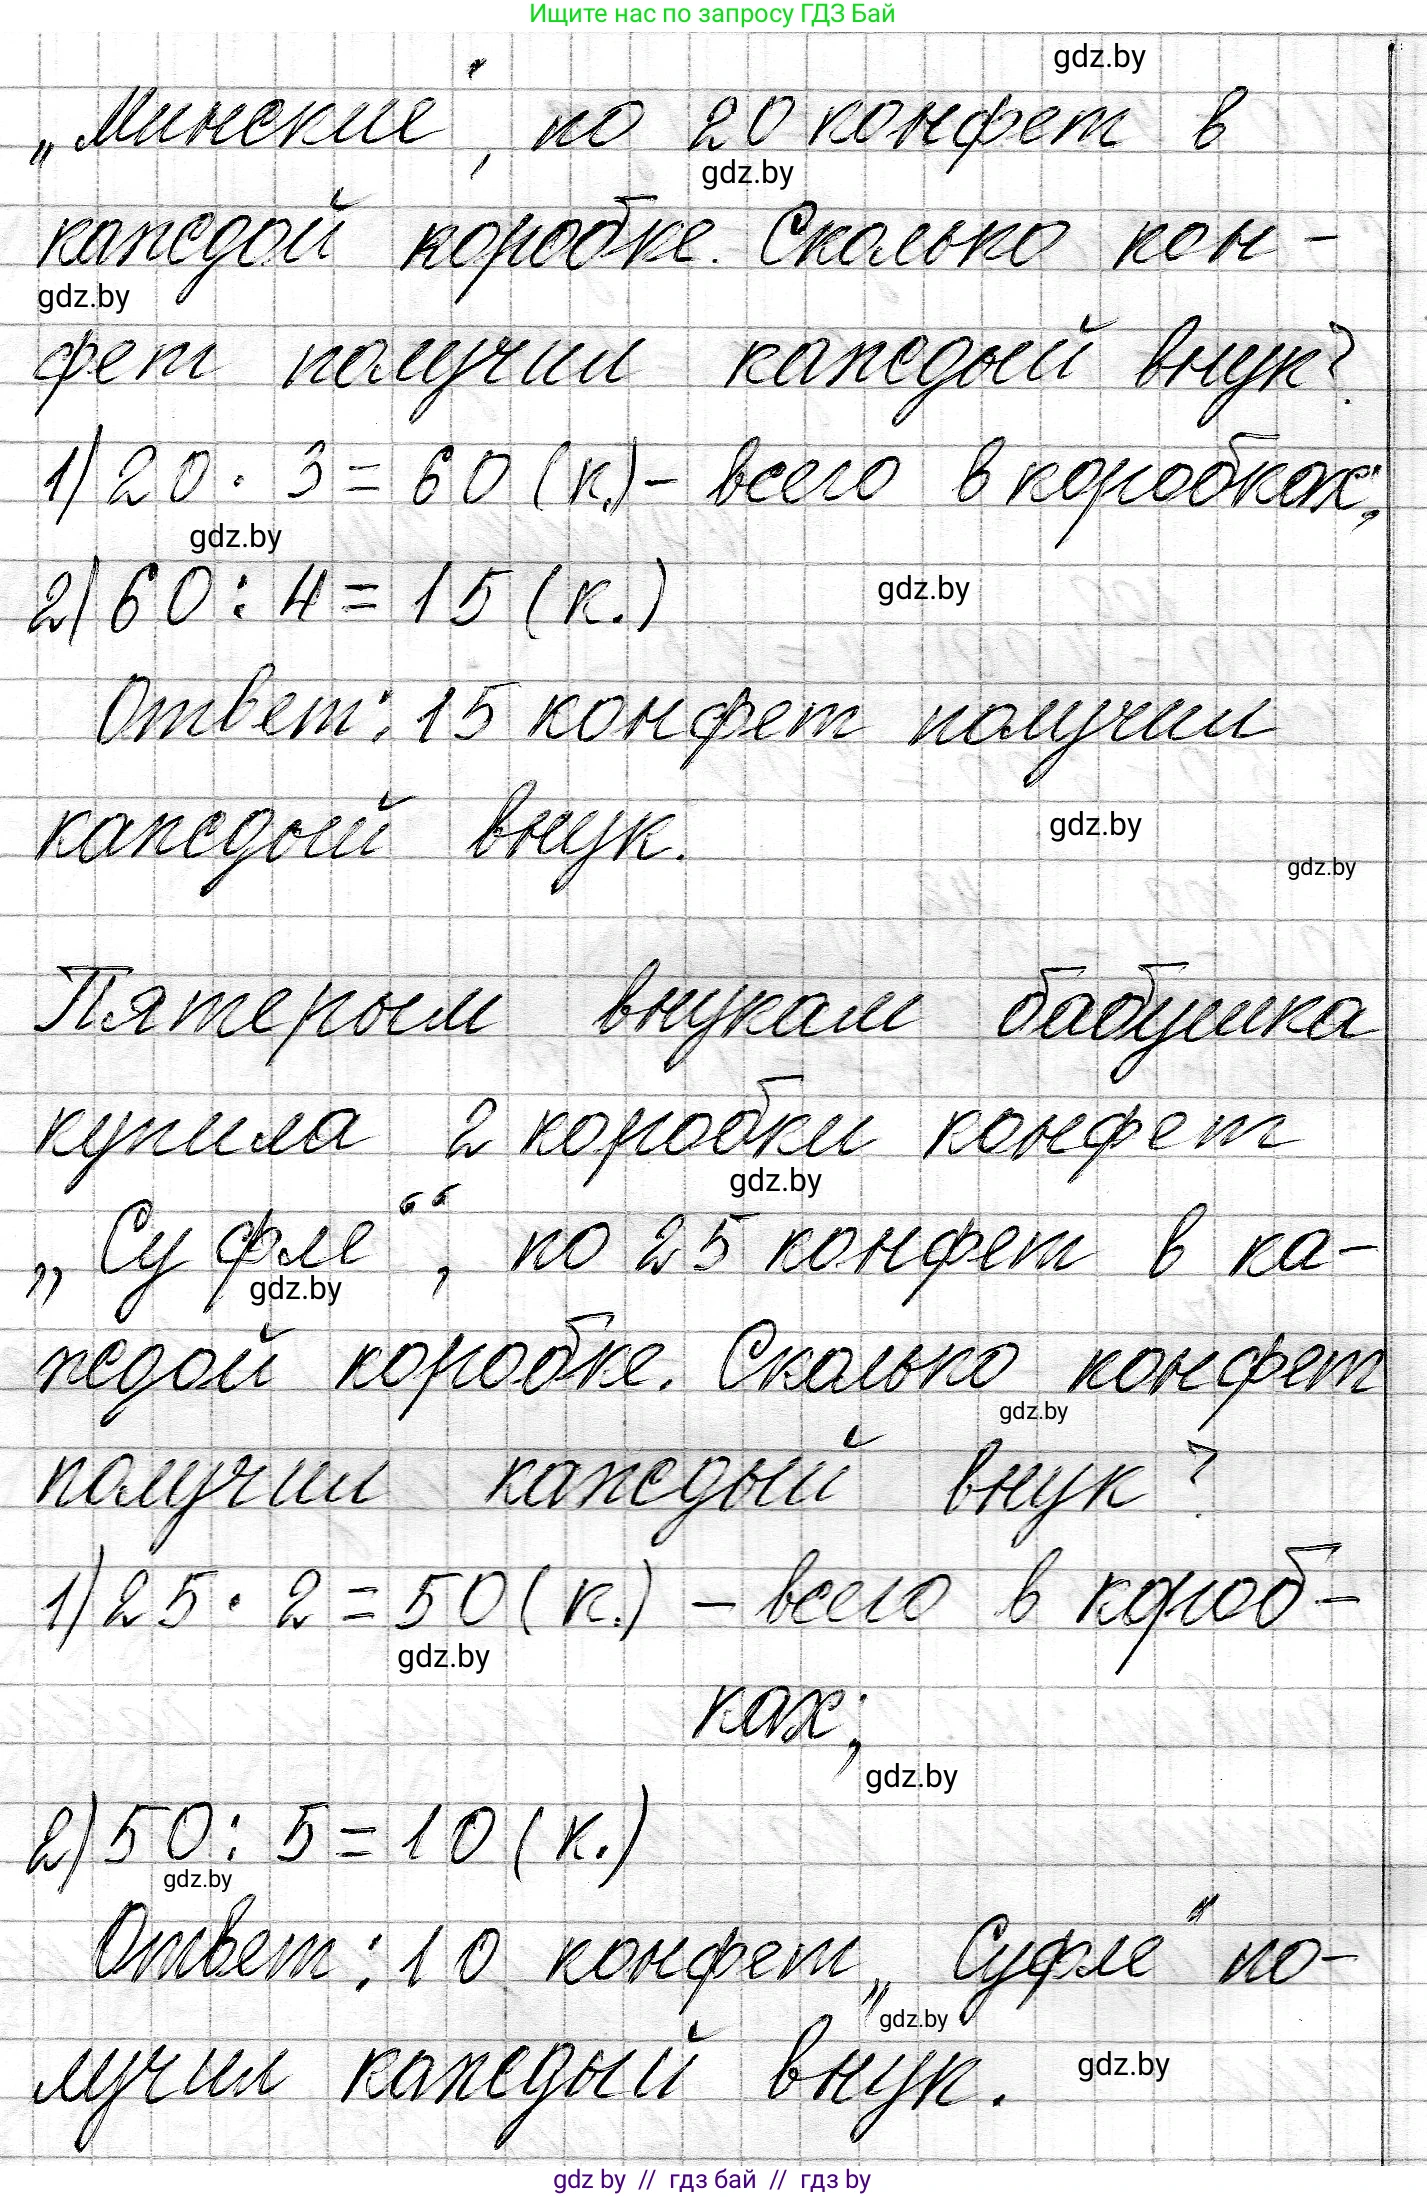 Ищите нас по запросу ГДЗ Бай
gdz.by
„Минские“, по 20 конфет в
gdz.by
каждой коробке. Сколько кон-
gdz.by
фет получил каждый внук?
1) 20 · 3 = 60 (к.) - всего в коробках;
gdz.by
2) 60 : 4 = 15 (к.)
gdz.by
Ответ: 15 конфет получил
каждый внук.
gdz.by
gdz.by
Пятерым внукам бабушка
купила 2 коробки конфет
gdz.by
„Суфле“, по 25 конфет в ка-
gdz.by
ждой коробке. Сколько конфет
gdz.by
получил каждый внук?
1) 25 · 2 = 50 (к.) - всего в короб-
gdz.by
ках;
gdz.by
2) 50 : 5 = 10 (к.)
gdz.by
Ответ: 10 конфет „Суфле“ по-
gdz.by
лучил каждый внук.
gdz.by
gdz by // гдз бай // гдз by